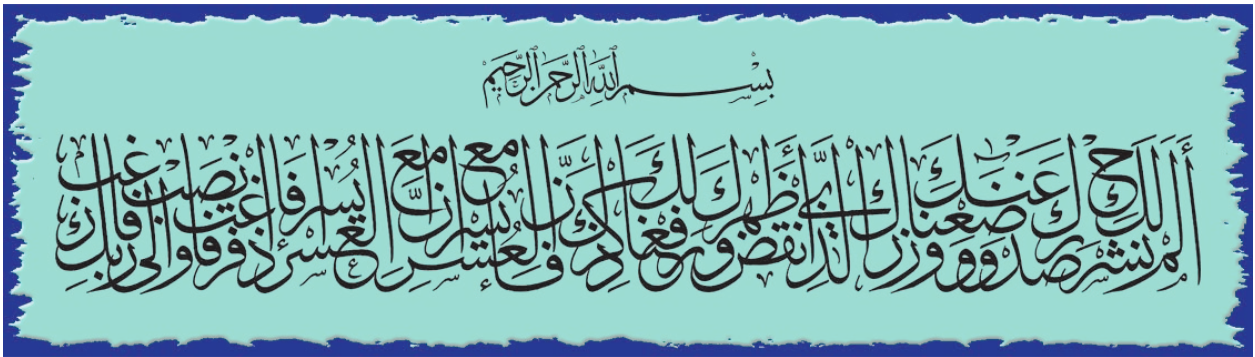 بِسْمِ اللَّهِ الرَّحْمَٰنِ الرَّحِيمِ
ألم نشرح لك صدرك ووضعنا عنك وزرك الذي أنقض ظهرك ورفعنا لك ذكرك فإن مع العسر يسرا إن مع العسر يسرا فإذا فرغت فانصب وإلى ربك فارغب